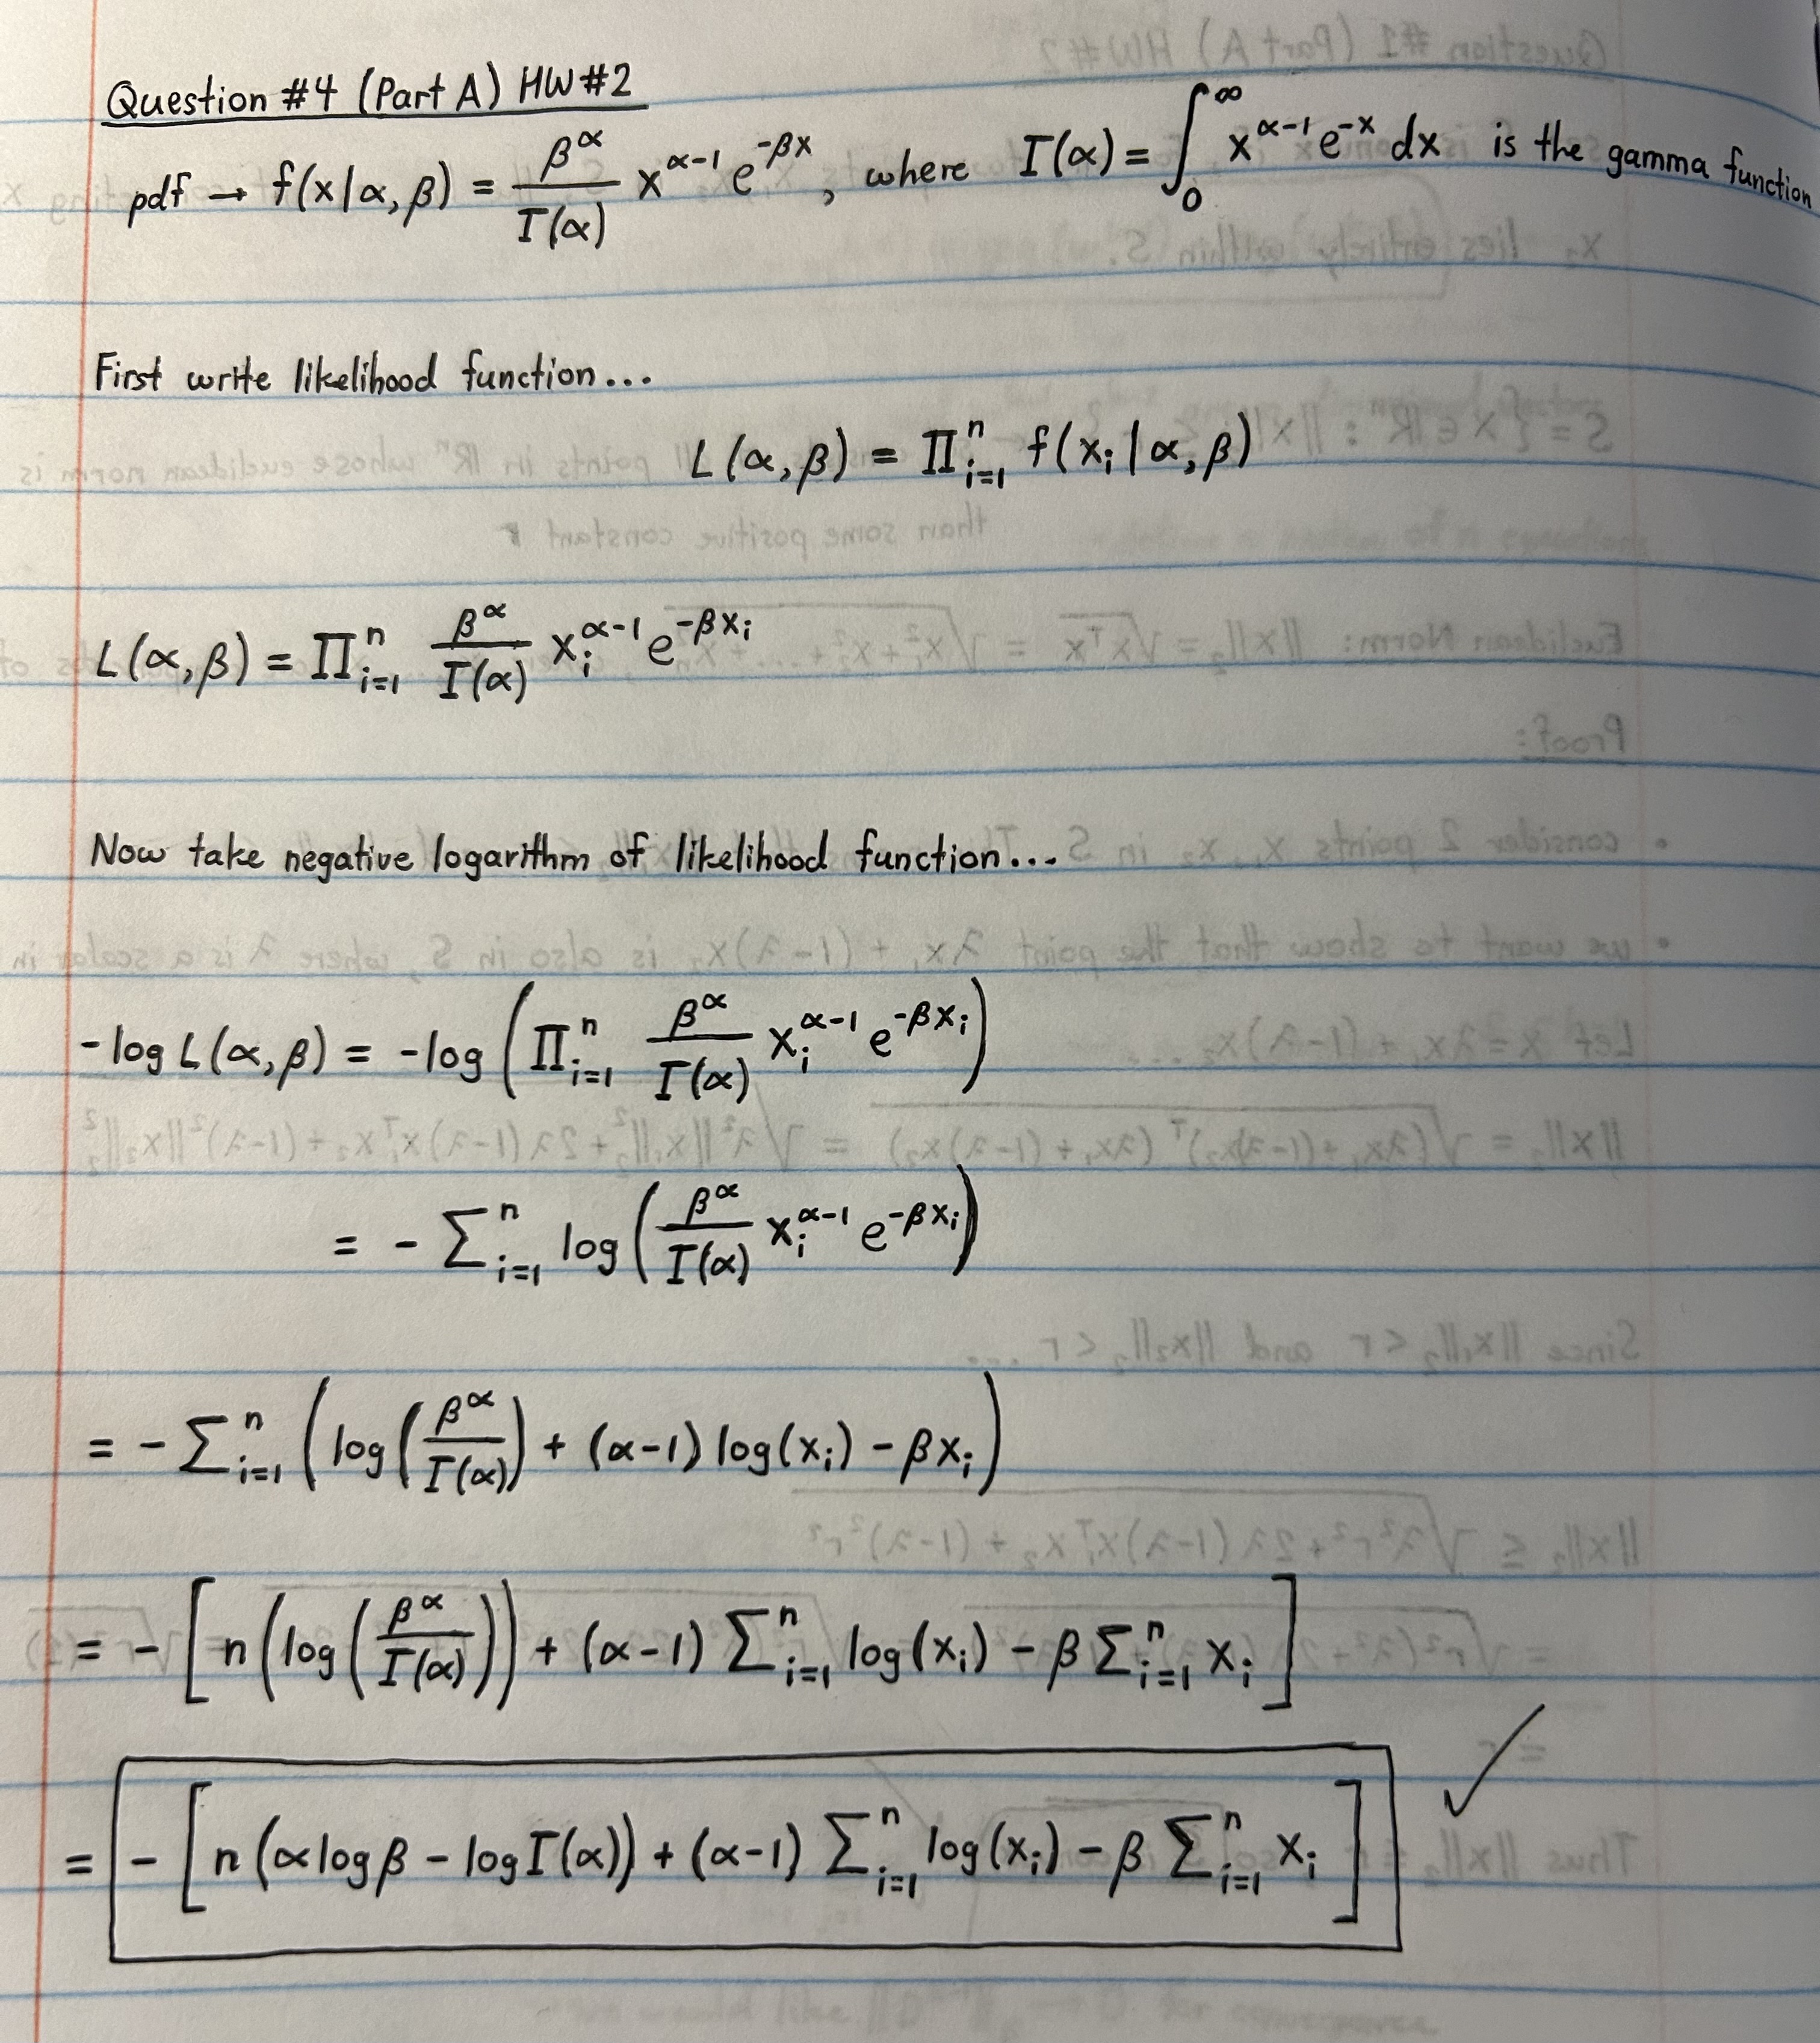 Question #4 (Part A) HW#2
pdf → f(x|α, β) = β^α / I(α) x^(α-1) e^(-βx), where I(α) = ∫_0^∞ x^(α-1) e^(-x) dx is the gamma function
First write likelihood function...
L(α, β) = Π_{i=1}^n f(x_i | α, β)
L(α, β) = Π_{i=1}^n β^α / I(α) x_i^(α-1) e^(-βx_i)
Now take negative logarithm of likelihood function...
-log L(α, β) = -log (Π_{i=1}^n β^α / I(α) x_i^(α-1) e^(-βx_i))
= - Σ_{i=1}^n log (β^α / I(α) x_i^(α-1) e^(-βx_i))
= - Σ_{i=1}^n (log (β^α / I(α)) + (α-1) log(x_i) - βx_i)
= - [n (log (β^α / I(α))) + (α-1) Σ_{i=1}^n log(x_i) - β Σ_{i=1}^n x_i]
= - [n (α log β - log I(α)) + (α-1) Σ_{i=1}^n log(x_i) - β Σ_{i=1}^n x_i] ✓